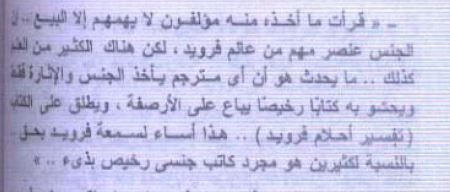 ـ « قرأت ما أخذه منه مؤلفون لا يهمهم إلا البيع .. إن
الجنس عنصر مهم من عالم فرويد ، لكن هناك الكثير من العلم
كذلك .. ما يحدث هو أن أى مترجم يأخذ الجنس والإثارة فقط
ويحشو به كتابًا رخيصًا يباع على الأرصفة ، ويطلق على الكتاب
( تفسير أحلام فرويد ) .. هذا أساء لسمعة فرويد بحق ..
بالنسبة لكثيرين هو مجرد كاتب جنسى رخيص بذىء .. »